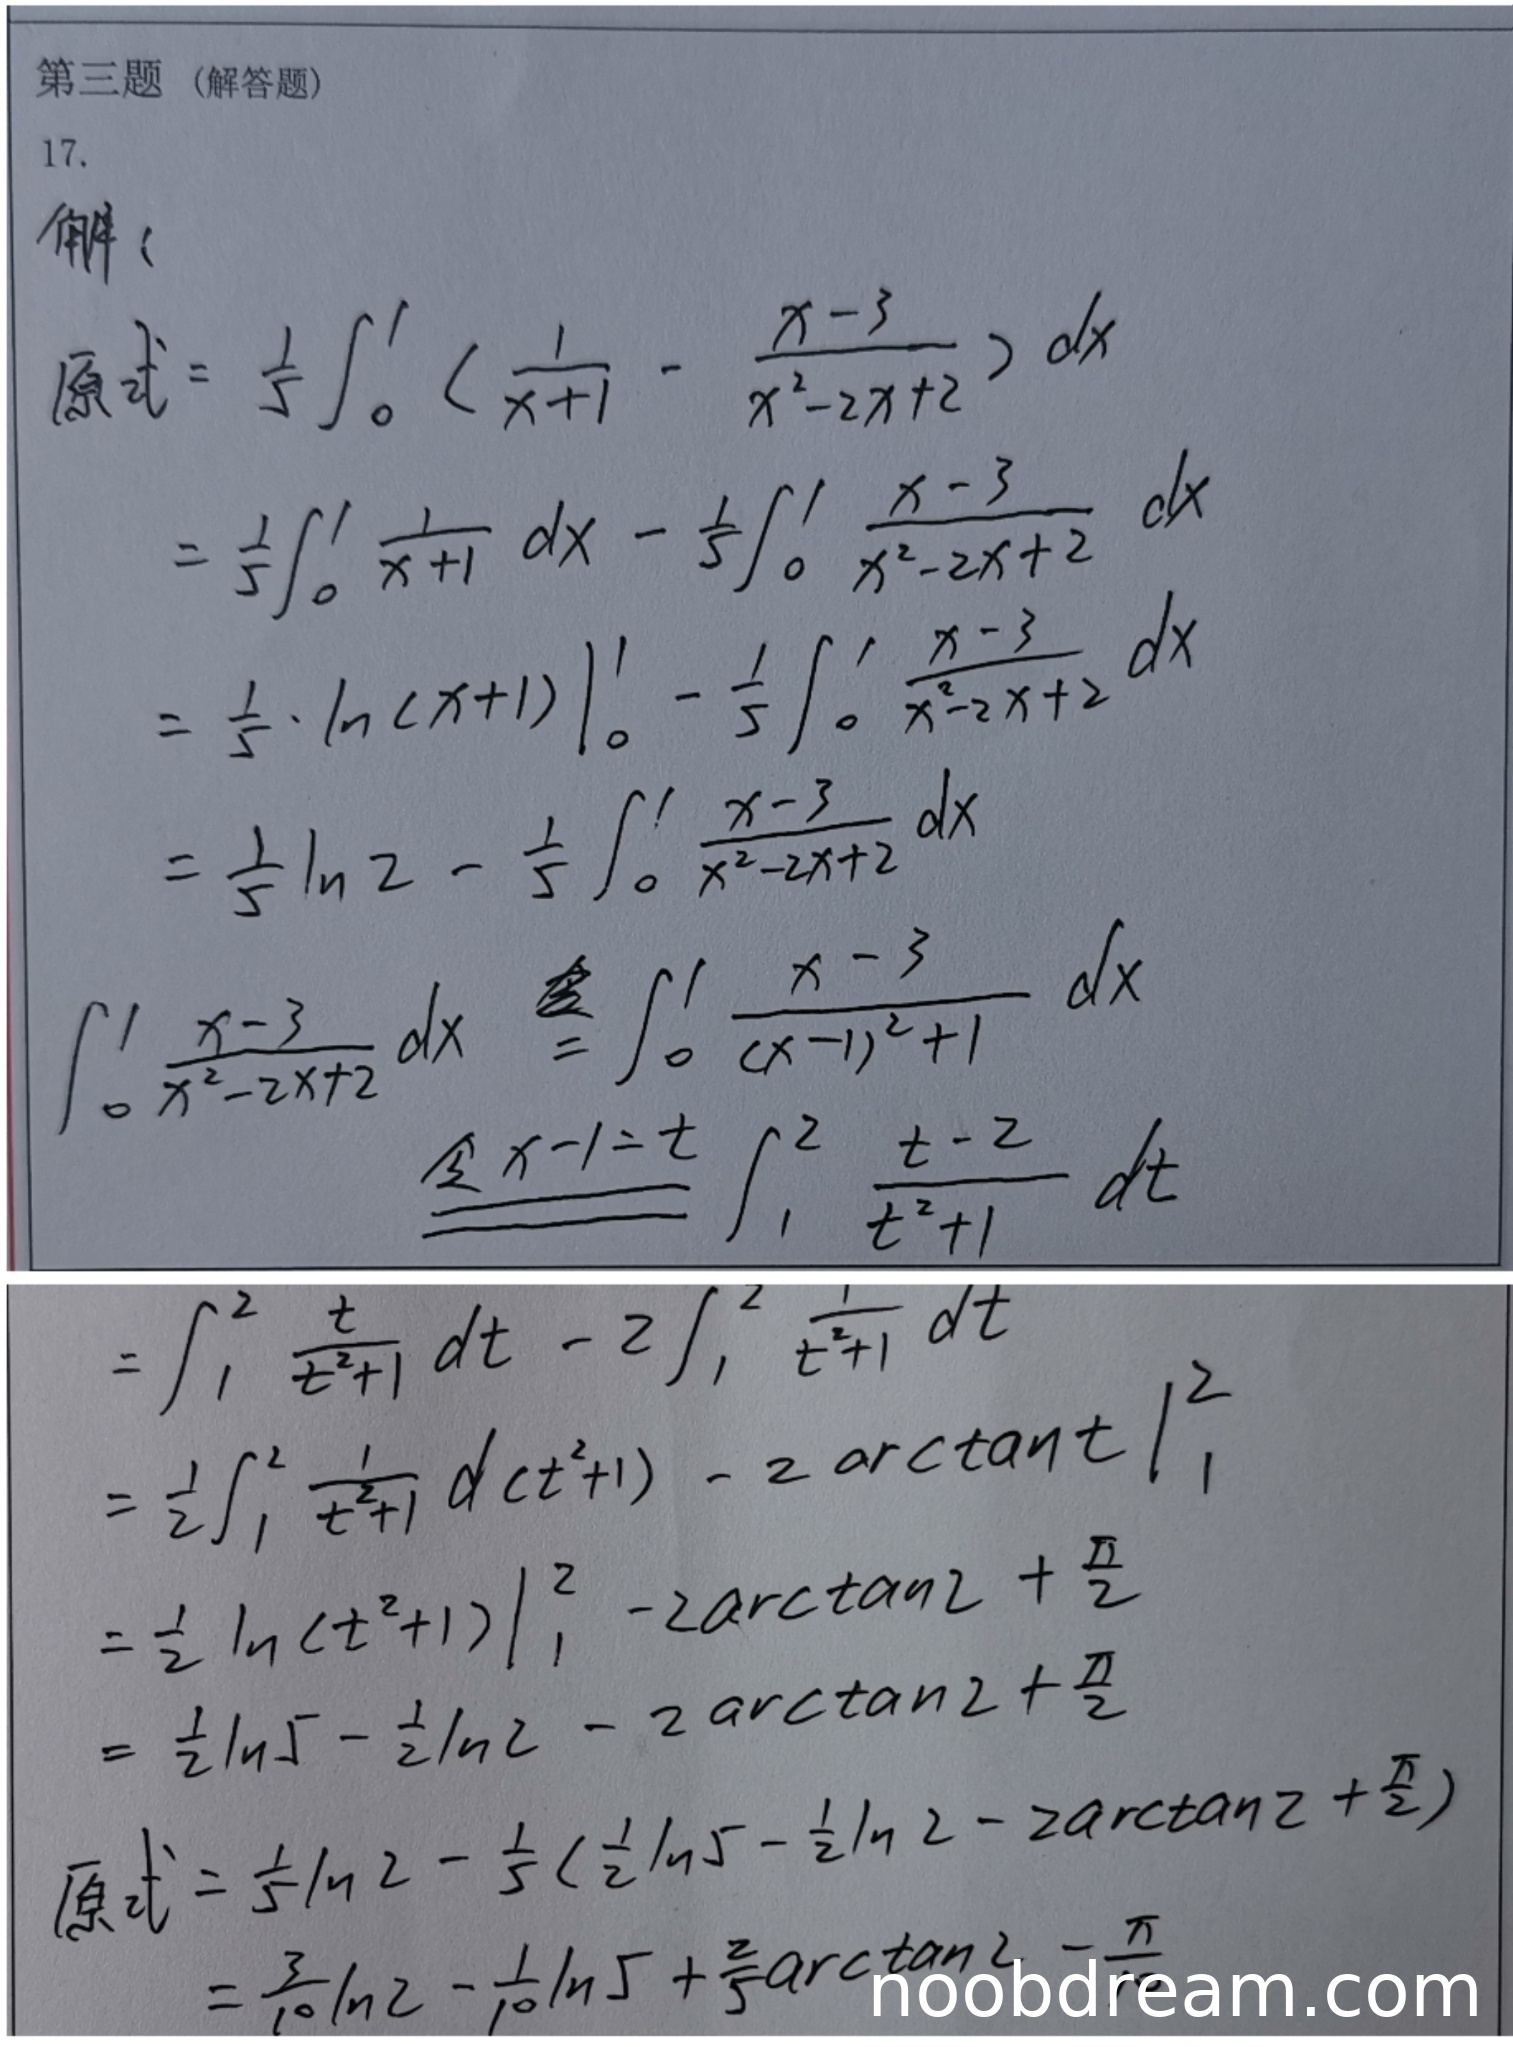 第三题 (解答题)
17.
解:
原式 = 1/5 ∫₀¹ (1/(x+1) - (x-3)/(x²-2x+2)) dx
= 1/5 ∫₀¹ 1/(x+1) dx - 1/5 ∫₀¹ (x-3)/(x²-2x+2) dx
= 1/5 · ln(x+1) |₀¹ - 1/5 ∫₀¹ (x-3)/(x²-2x+2) dx
= 1/5 ln2 - 1/5 ∫₀¹ (x-3)/(x²-2x+2) dx
∫₀¹ (x-3)/(x²-2x+2) dx = ∫₀¹ (x-3)/((x-1)²+1) dx
令 x-1=t ∫₁² (t-2)/(t²+1) dt
= ∫₁² t/(t²+1) dt - 2∫₁² 1/(t²+1) dt
= 1/2 ∫₁² 1/(t²+1) d(t²+1) - 2 arctan t |₁²
= 1/2 ln(t²+1) |₁² - 2arctan2 + π/2
= 1/2 ln5 - 1/2 ln2 - 2 arctan2 + π/2
原式 = 1/5 ln2 - 1/5 (1/2 ln5 - 1/2 ln2 - 2arctan2 + π/2)
= 3/10 ln2 - 1/10 ln5 + 2/5 arctan2 - π/10
noobdream.com